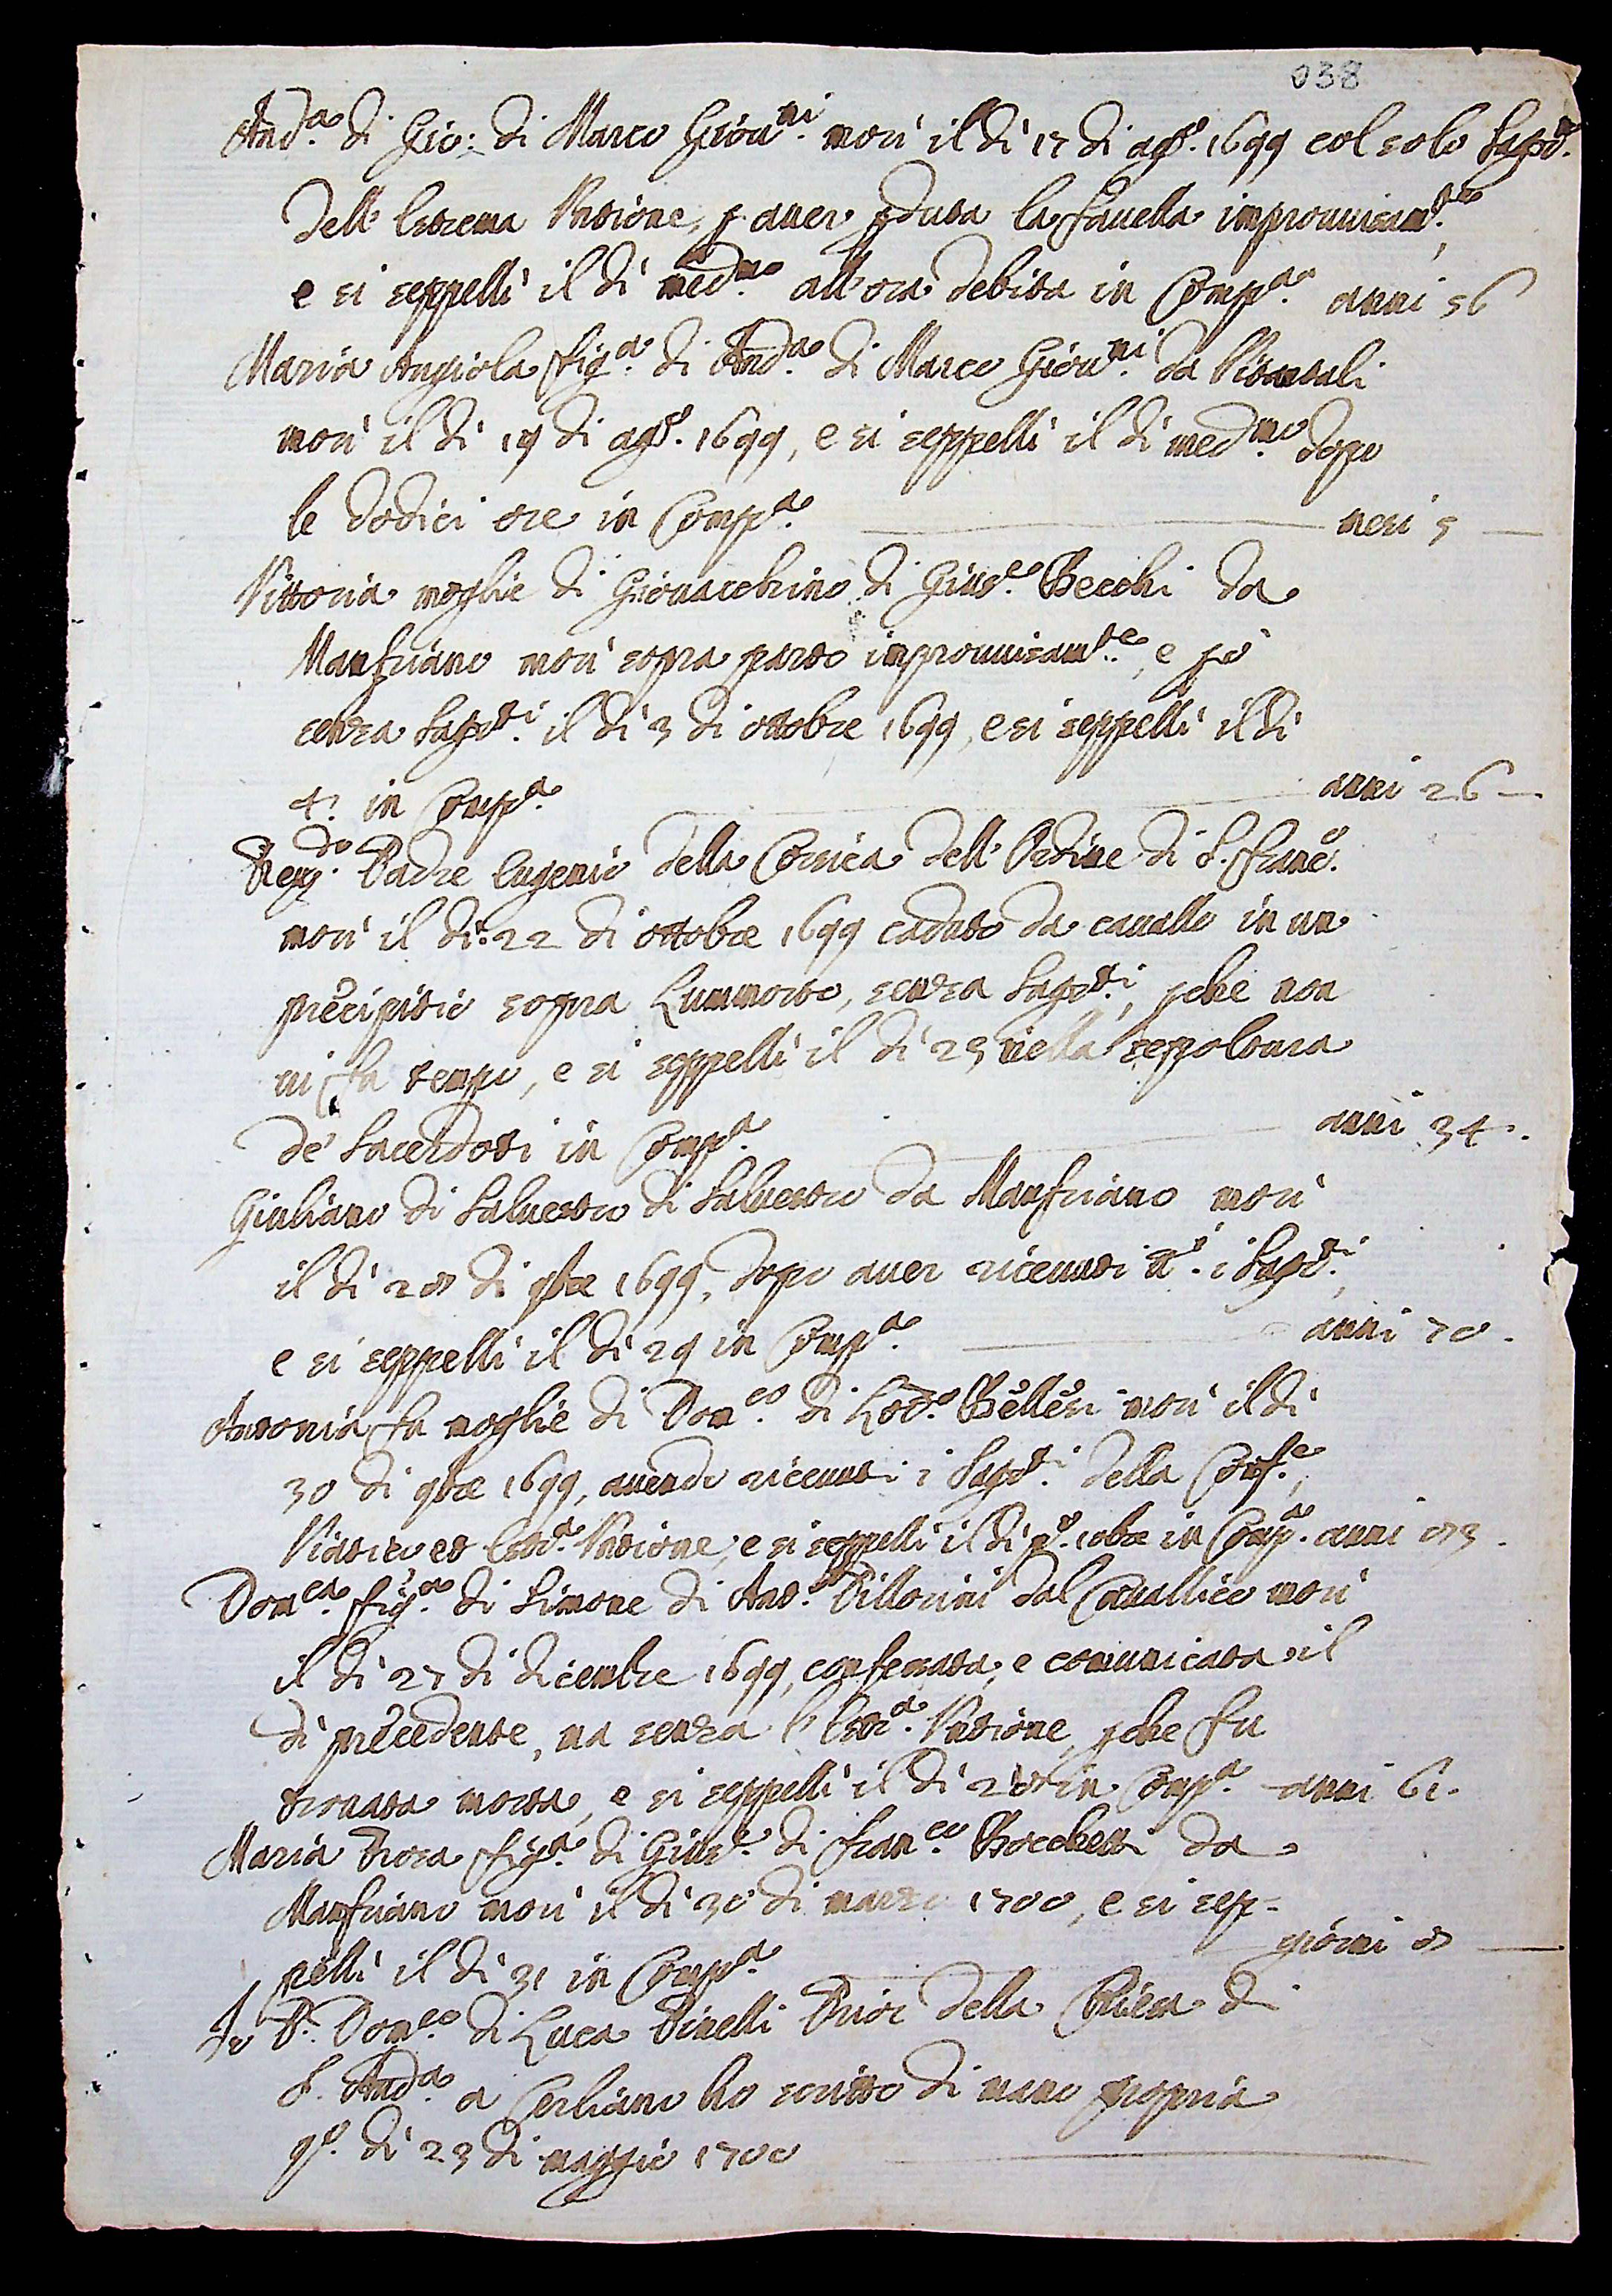 038
And.a di Gio: di Marco Giou.ni morì il dì 17 di ag.o 1699 col solo Sagr.to
dell'Estrema Untione, p auer pduta la fauella improuuisam.te,
e si seppellì il dì med.mo all'ora debita in Comp.a anni 56
Maria Angiola fig.a di And.a di Marco Giou.ni da
morì il dì 19 di ag.o 1699, e si seppellì il dì med.mo dopo
le dodici ore in Comp.a mesi 5
Vittoria moglie di Giouacchino di Gius.e Becchi da
Manfriano morì sopra parto improuuisam.te, e pò
senza Sagr.ti il dì 3 di ottobre 1699, e si seppellì il dì
4: in Comp.a anni 26
Padre Eugenio della Cornica dell'Ordine di S. Franc.o
morì il dì 22 di ottobre 1699 caduto da cauallo in un
precipitio sopra Lummorto, senza Sagr.ti, pche non
ui fu tempo, e si seppellì il dì 25 nella sepoltura
de' Sacerdoti in Comp.a anni 34.
Giuliano di Saluestro di Saluestro da Manfriano morì
il dì 28 di 9bre 1699, dopo auer riceuuti i Sagr.ti,
e si seppellì il dì 29 in Comp.a anni 70.
Antonia fu moglie di Dom.co di Lod.o Bellesi morì il dì
30 di 9bre 1699, auendo riceuuti i Sagr.ti della Conf.e,
Viatico et Estr.a Untione, e si seppellì il dì p.o 10bre in Comp.a anni 83.
Dom.ca fig.a di Simone di And.a Pillorini dal Cauallico morì
il dì 27 di dicembre 1699, confessata, e comunicata il
dì precedente, ma senza l'Estr.a Untione, pche fu
trouata morta, e si seppellì il dì 28 in Comp.a anni 61.
Maria Rosa fig.a di Gius.e di Fran.co Bocchetti da
Manfriano morì il dì 30 di marzo 1700, e si sep-
pellì il dì 31 in Comp.a giorni 8
Io P. Dom.co di Luca Pinelli Prior della Chiesa di
S. And.a a Cerliano ho scritto di mano propria
q.o dì 23 di maggio 1700